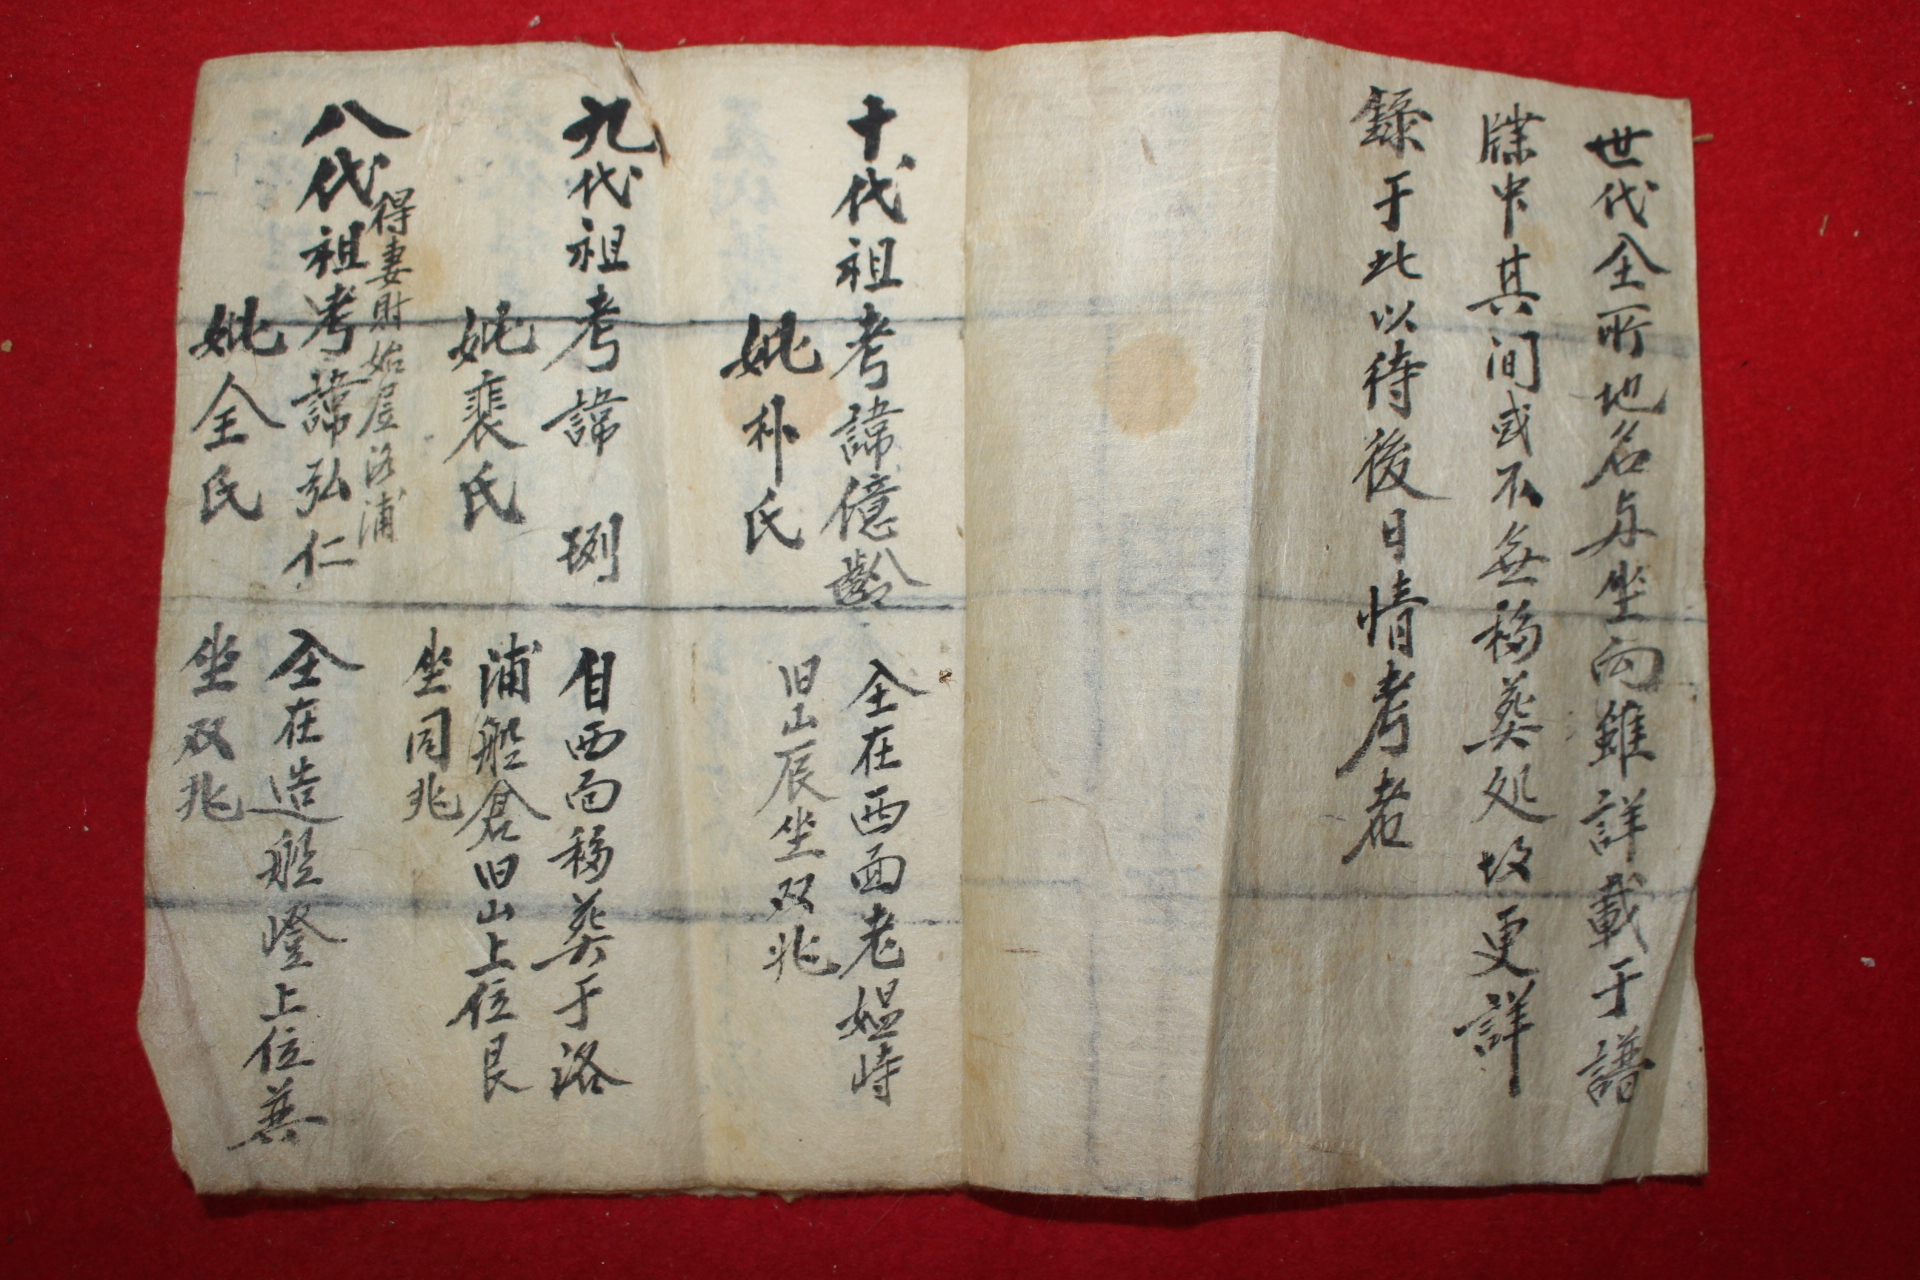 世代仝所地名与坐向雖詳載于譜
牒中其间或不無移葬处故更詳
錄于此以待後日情考者
十代祖考諱億齡
妣朴氏
仝在西面老媪峙
旧山辰坐双兆
九代祖考諱
妣裵氏
自西面移葬于洛
浦船倉旧山上位艮
坐同兆
得妻財始居洛浦
八代祖考諱弘仁
妣全氏
仝在造船嶝上位巽
坐双兆